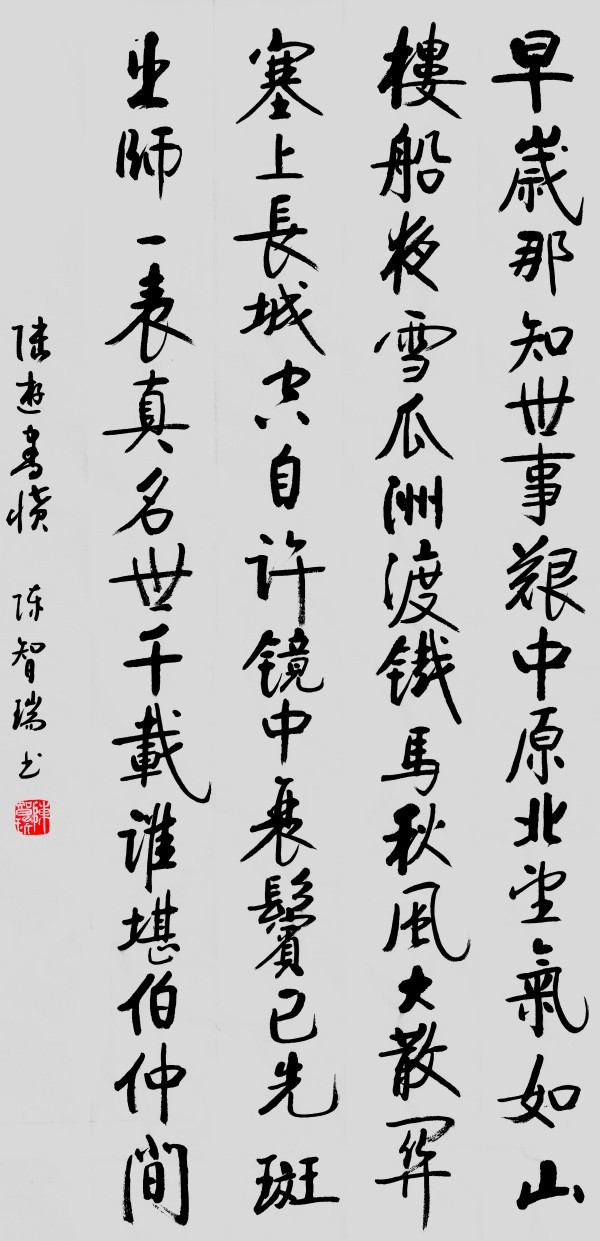 早歲那知世事艱中原北望氣如山
樓船夜雪瓜洲渡鐵馬秋風大散關
塞上長城空自許鏡中衰鬢已先斑
出師一表真名世千載誰堪伯仲間
陸遊書憤 陳智瑞书